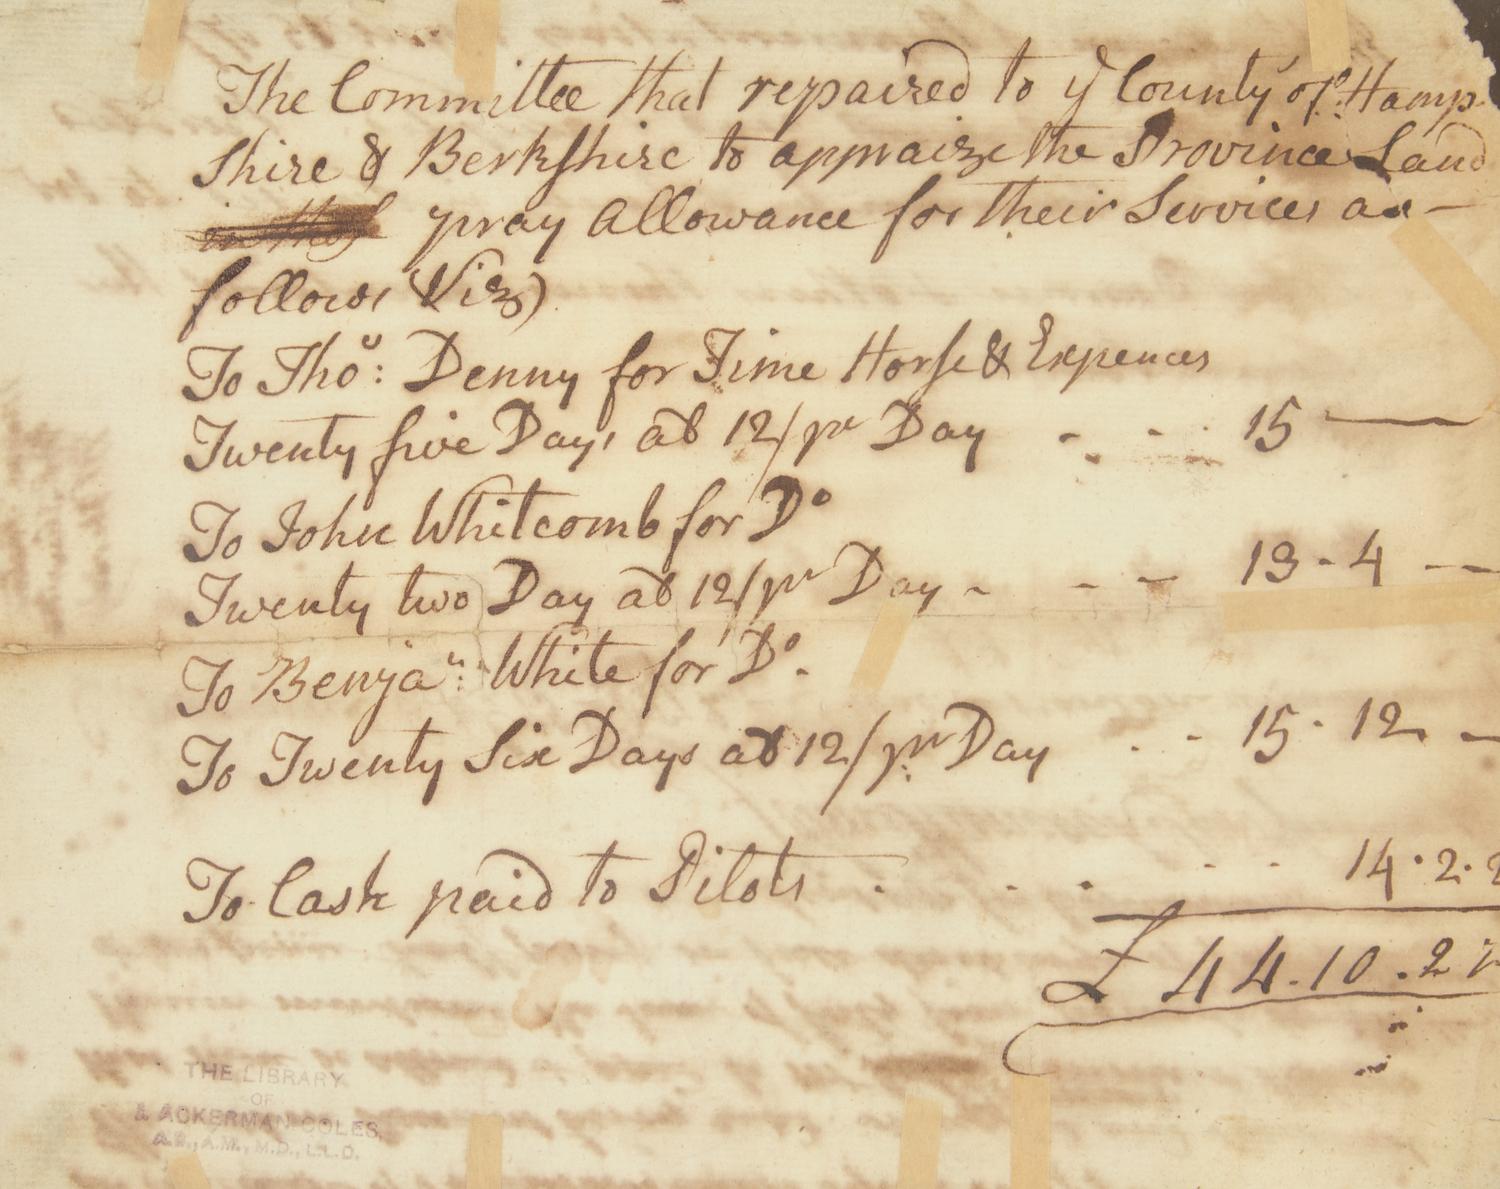 The Committee that repaired to y County of Hamp
shire & Berkshire to appraize the Province Land
pray allowance for their Services as —
follows Viz)
To Thos: Denny for Time Horse & Expences
Twenty five Days at 12/ pr Day - - - 15 —
To John Whitcomb for Do
Twenty two Day at 12/ pr Day - - - 13 - 4 —
To Benjan: White for Do.
To Twenty Six Days at 12/ pr Day - - 15 - 12 —
To Cash paid to Pilots . . . . . 14 . 2 . 2
£ 44 . 10 . 2
THE LIBRARY
OF
J. ACKERMAN COLES,
A.B., A.M., M.D., L.L.D.